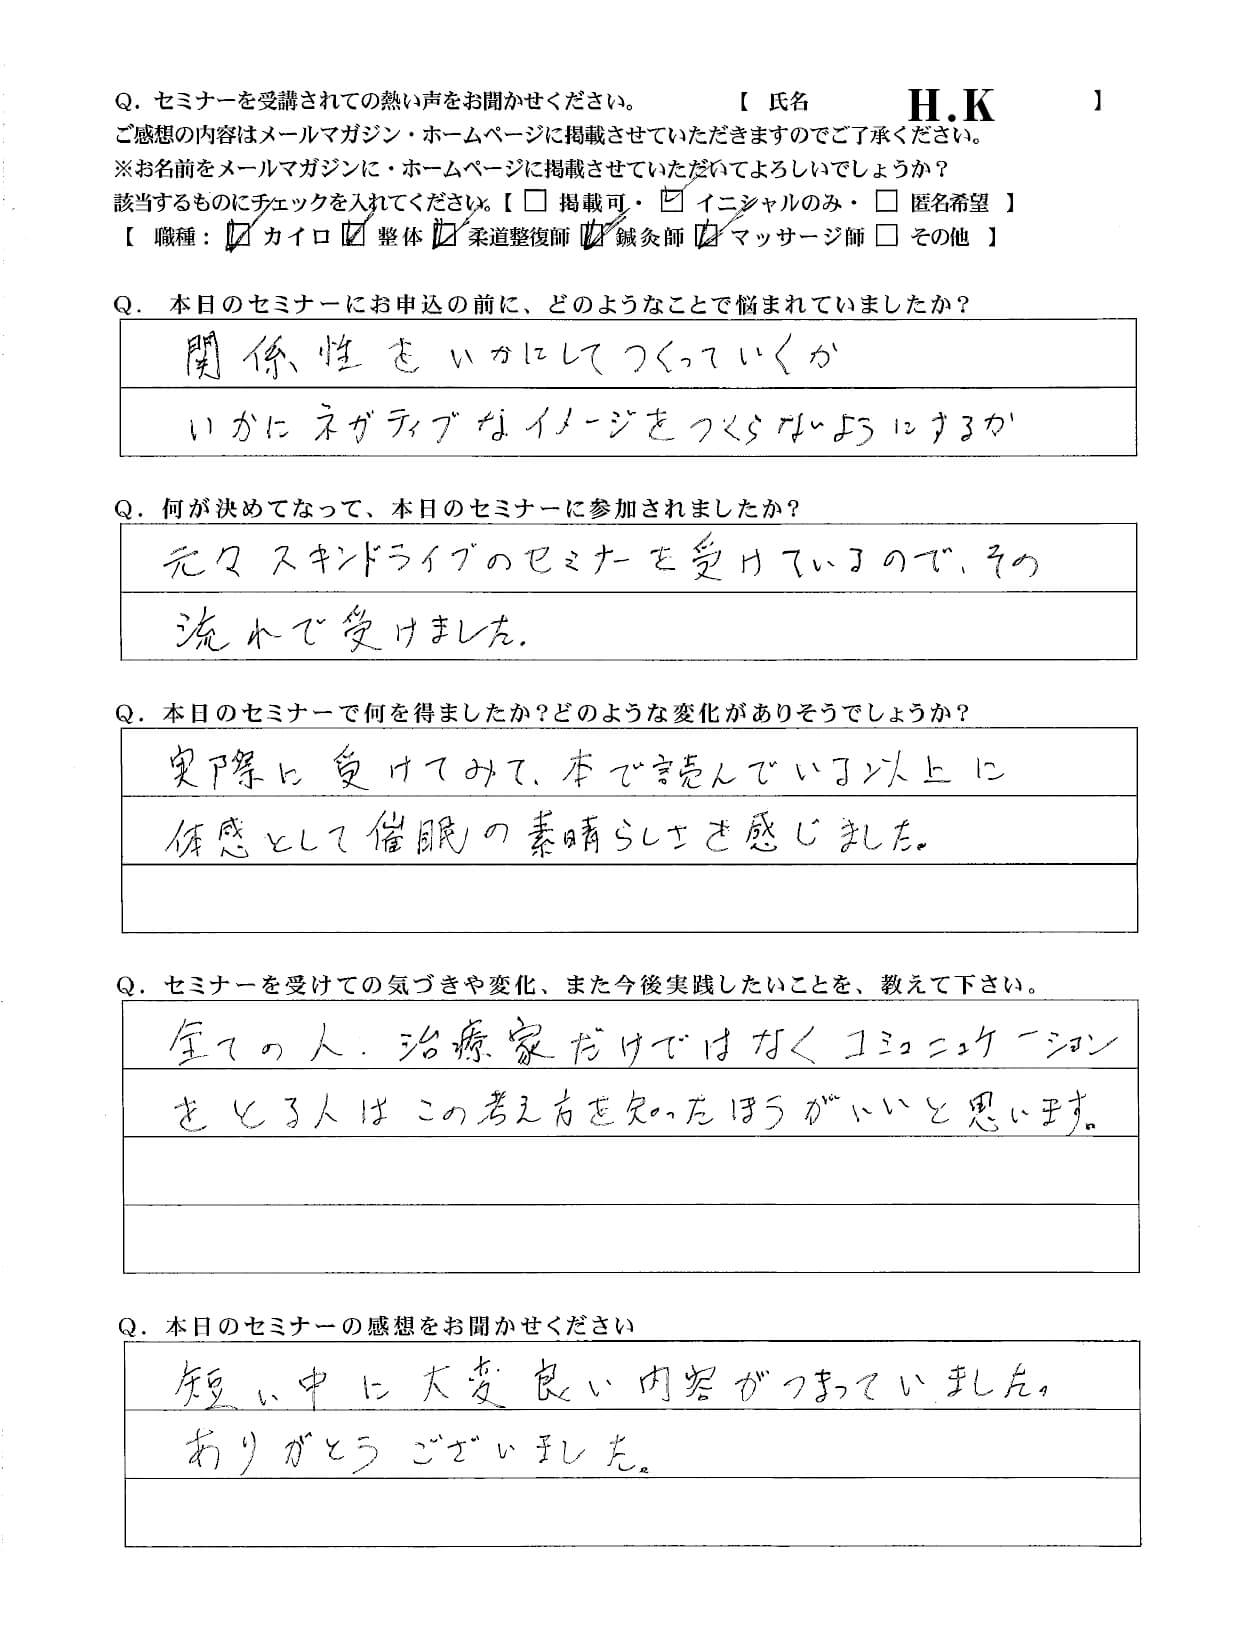 Q．セミナーを受講されての熱い声をお聞かせください。　【 氏名　H.K　】
ご感想の内容はメールマガジン・ホームページに掲載させていただきますのでご了承ください。
※お名前をメールマガジンに・ホームページに掲載させていただいてよろしいでしょうか？
該当するものにチェックを入れてください。【 □ 掲載可・ ☑ イニシャルのみ・ □ 匿名希望 】
【 職種： ☑ カイロ ☑ 整体 ☑ 柔道整復師 ☑ 鍼灸師 ☑ マッサージ師 □ その他 】
Q． 本日のセミナーにお申込の前に、どのようなことで悩まれていましたか？
関係性をいかにしてつくっていくか
いかにネガティブなイメージをつくらないようにするか
Q．何が決めてなって、本日のセミナーに参加されましたか？
元々スキンドライブのセミナーを受けているので、その
流れで受けました.
Q．本日のセミナーで何を得ましたか？どのような変化がありそうでしょうか？
実際に受けてみて、本で読んでいる以上に
体感として催眠の素晴らしさを感じました。
Q．セミナーを受けての気づきや変化、また今後実践したいことを、教えて下さい。
全ての人.治療家だけではなくコミュニュケーション
をとる人はこの考え方を知ったほうがいいと思います。
Q．本日のセミナーの感想をお聞かせください
短い中に大変良い内容がつまっていました。
ありがとうございました。